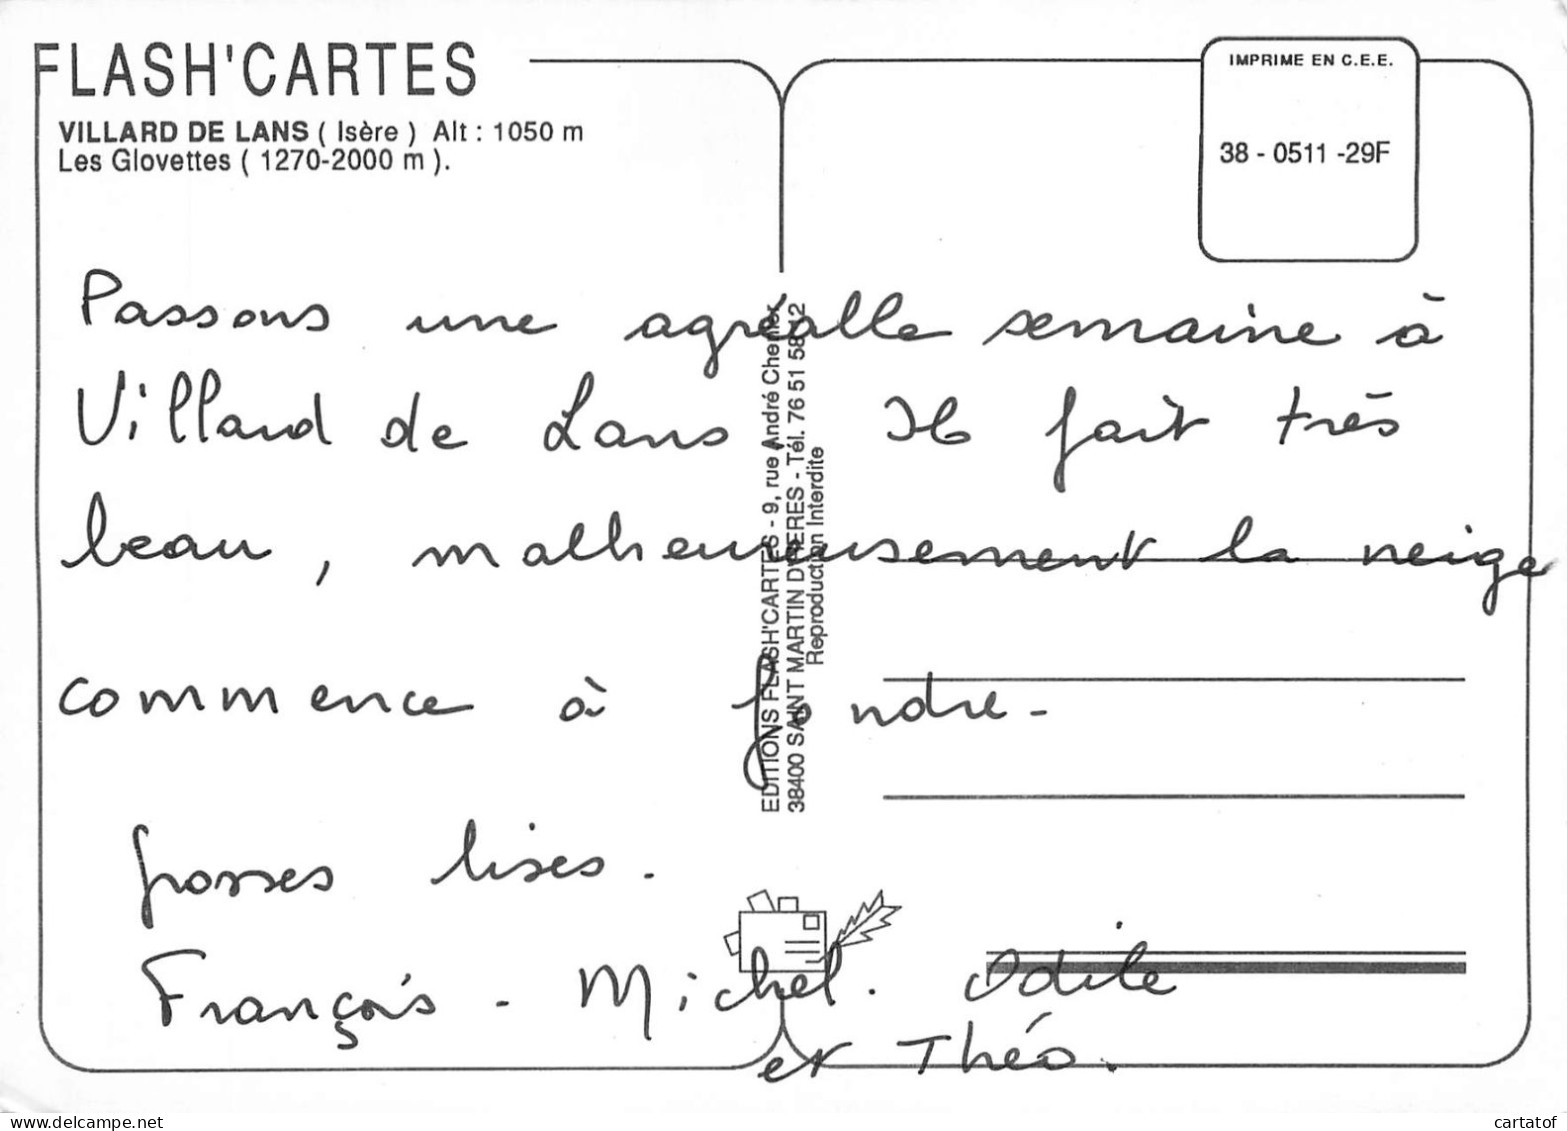 FLASH'CARTES
VILLARD DE LANS ( Isère ) Alt : 1050 m
Les Glovettes ( 1270-2000 m ).
IMPRIME EN C.E.E.
38 - 0511 -29F
Passons une agréable semaine à
Villard de Lans, Il fait très
beau, malheureusement la neige
commence à fondre.
grosses bises.
François - Michel. Odile
et Théo.
EDITIONS FLASH'CARTES - 9, rue André Chenier
38400 SAINT MARTIN D'HERES - Tél. 76 51 58 12
Reproduction Interdite
cartatof